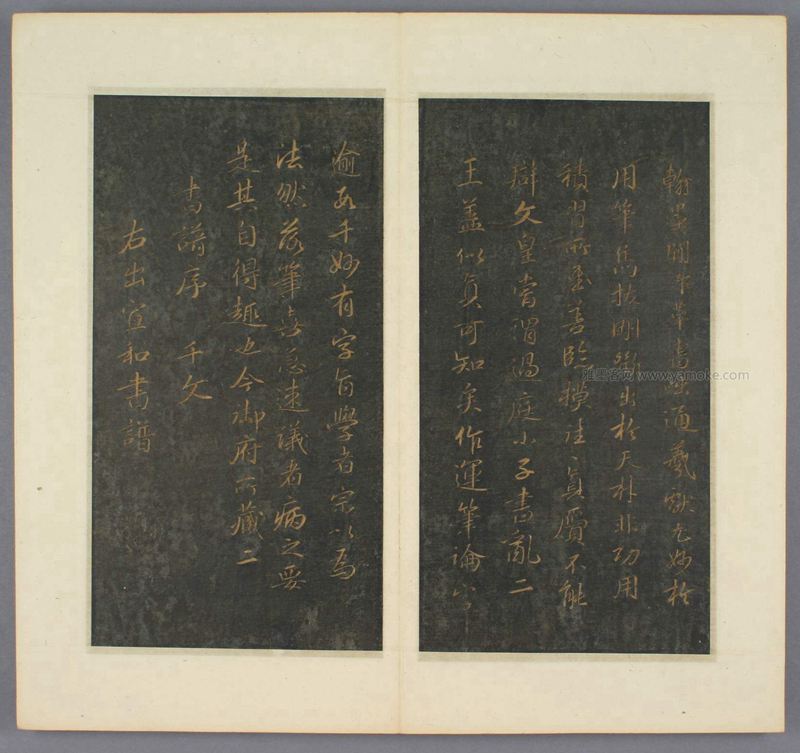 翰墨間作草書通羲獻尤妙於
用筆雋拔剛斷出於天材非功用
積習所至善臨模往〻真贋不能
辯文皇嘗謂過庭小子書亂二
王蓋似真可知矣作運筆論字
逾數千妙有字旨學者宗以為
法然落筆喜急速議者病之要
是其自得趣也今御府所藏二
書譜序 千文
右出宣和書譜
雅墨客网 www.yamoke.com